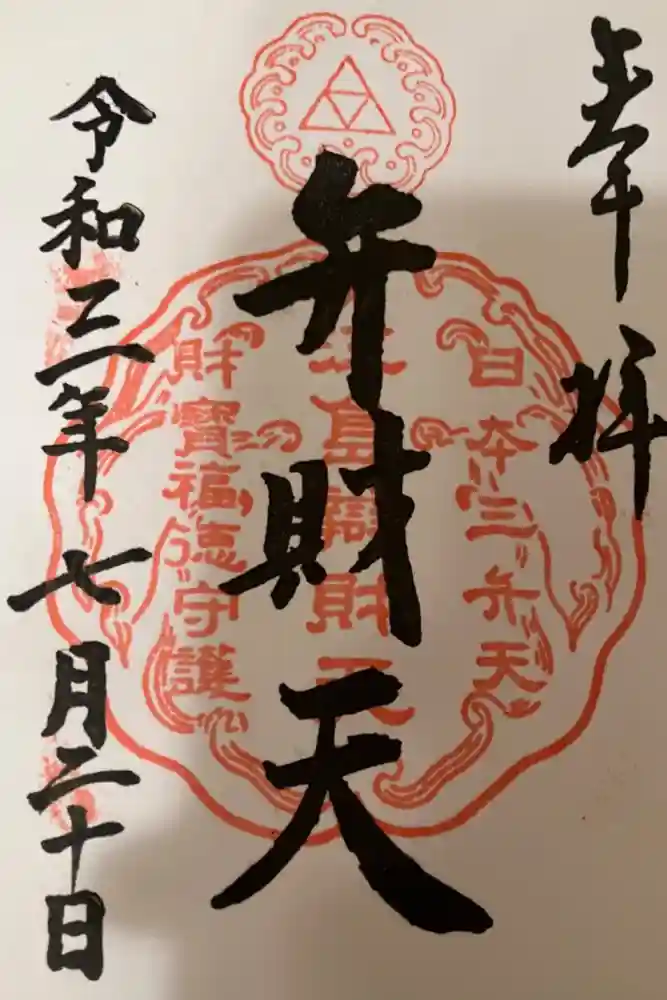 奉拝
日本三弁天
江島辯財天
弁財天
財寶福徳守護
令和三年七月二十日